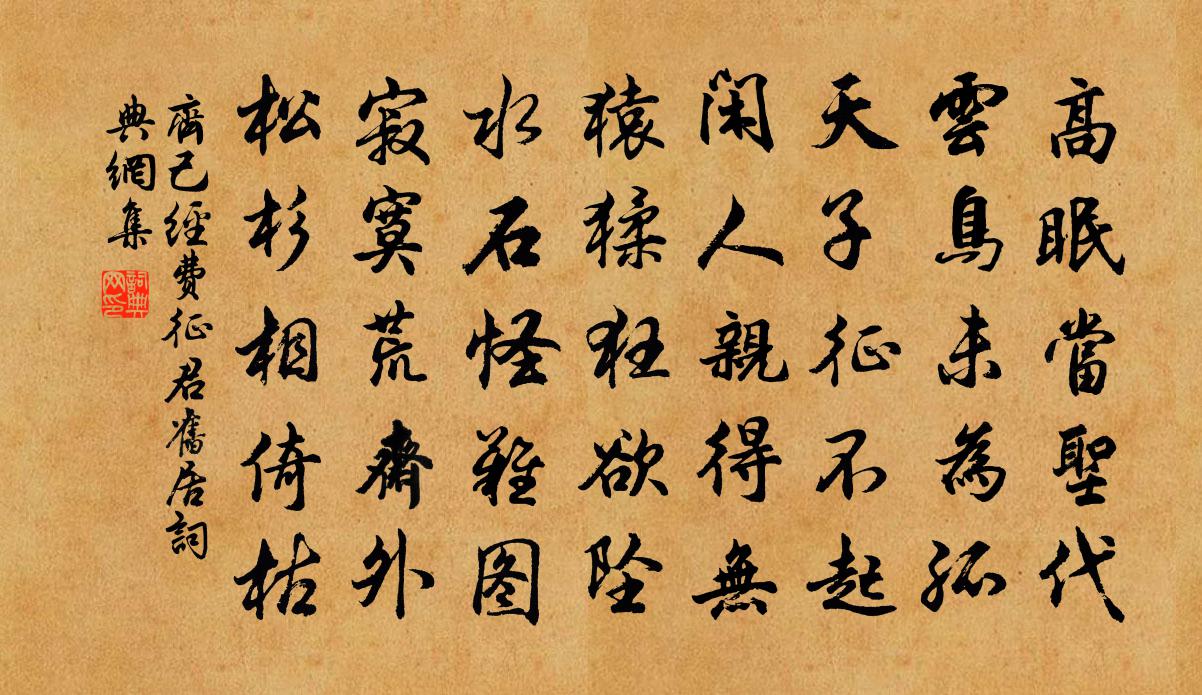 高眠當聖代
雲鳥未為孤
天子征不起
閑人親得無
猿猱狂欲墜
水石怪難图
寂寞荒齋外
松杉相倚枯
齊己經費征君舊居詞
典網集
詞典网印